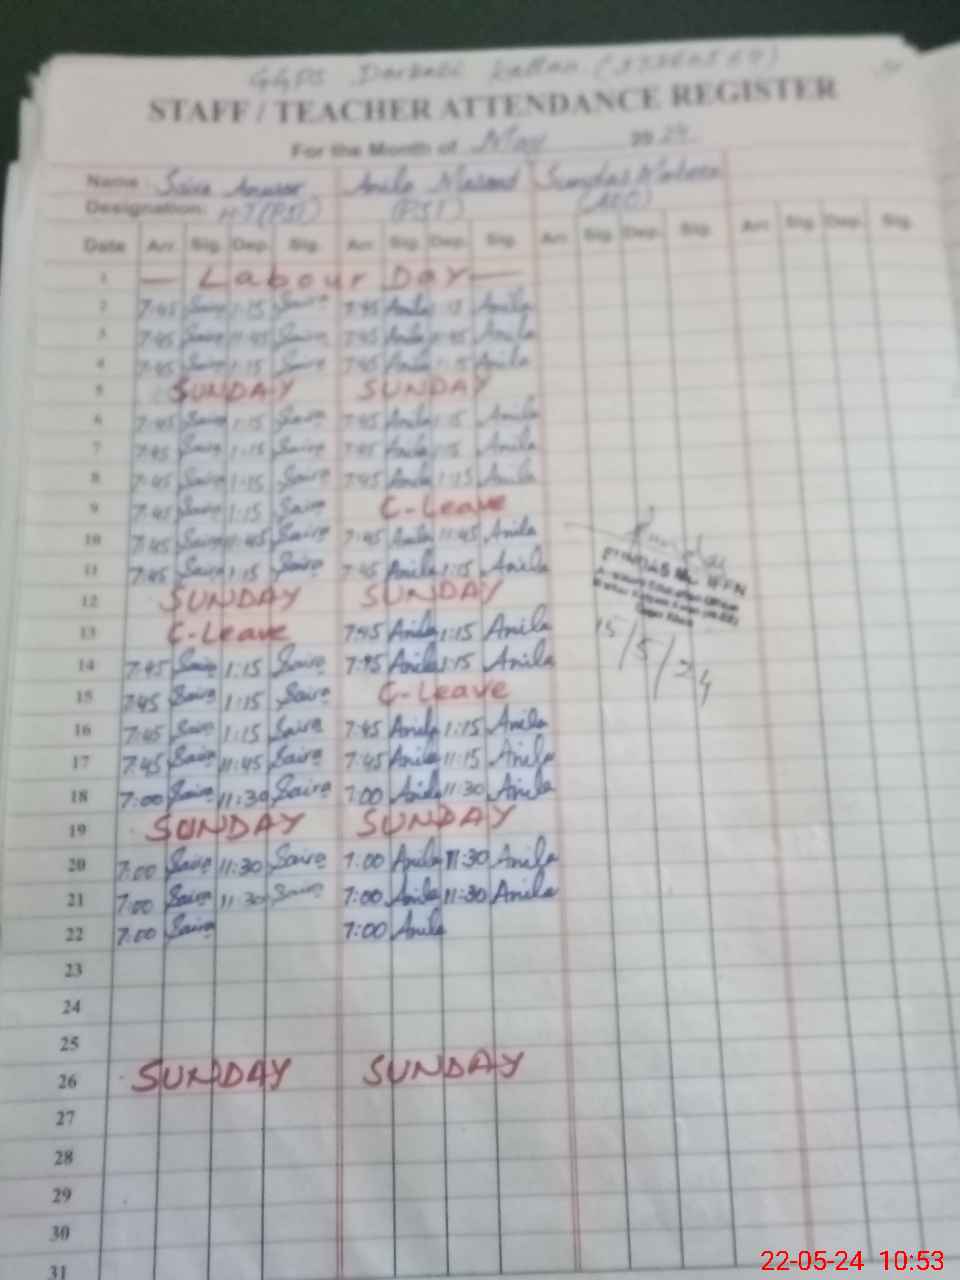 GGPS Darbari Kallan
STAFF / TEACHER ATTENDANCE REGISTER
For the Month of May 2024
Name: Saira Anwar Anila Masood Sundas
Designation: H.T (PST) (PST) (AEO)
Date Arr. Sig. Dep. Sig. Arr. Sig. Dep. Sig. Arr. Sig. Dep. Sig. Arr. Sig. Dep. Sig.
1 — Labour DAY —
2 7:45 Saira 1:15 Saira 7:45 Anila 1:15 Anila
3 7:45 Saira 11:45 Saira 7:45 Anila 11:45 Anila
4 7:45 Saira 1:15 Saira 7:45 Anila 1:15 Anila
5 SUNDAY SUNDAY
6 7:45 Saira 1:15 Saira 7:45 Anila 1:15 Anila
7 7:45 Saira 1:15 Saira 7:45 Anila 1:15 Anila
8 7:45 Saira 1:15 Saira 7:45 Anila 1:15 Anila
9 7:45 Saira 1:15 Saira C-Leave
10 7:45 Saira 11:45 Saira 7:45 Anila 11:45 Anila
11 7:45 Saira 1:15 Saira 7:45 Anila 1:15 Anila
12 SUNDAY SUNDAY
13 C-Leave 7:45 Anila 1:15 Anila
14 7:45 Saira 1:15 Saira 7:45 Anila 1:15 Anila
15 7:45 Saira 1:15 Saira C-Leave
15/5/24
16 7:45 Saira 1:15 Saira 7:45 Anila 1:15 Anila
17 7:45 Saira 11:45 Saira 7:45 Anila 11:15 Anila
18 7:00 Saira 11:30 Saira 7:00 Anila 11:30 Anila
19 SUNDAY SUNDAY
20 7:00 Saira 11:30 Saira 7:00 Anila 11:30 Anila
21 7:00 Saira 11:30 Saira 7:00 Anila 11:30 Anila
22 7:00 Saira 7:00 Anila
23
24
25
26 SUNDAY SUNDAY
27
28
29
30
31
22-05-24 10:53